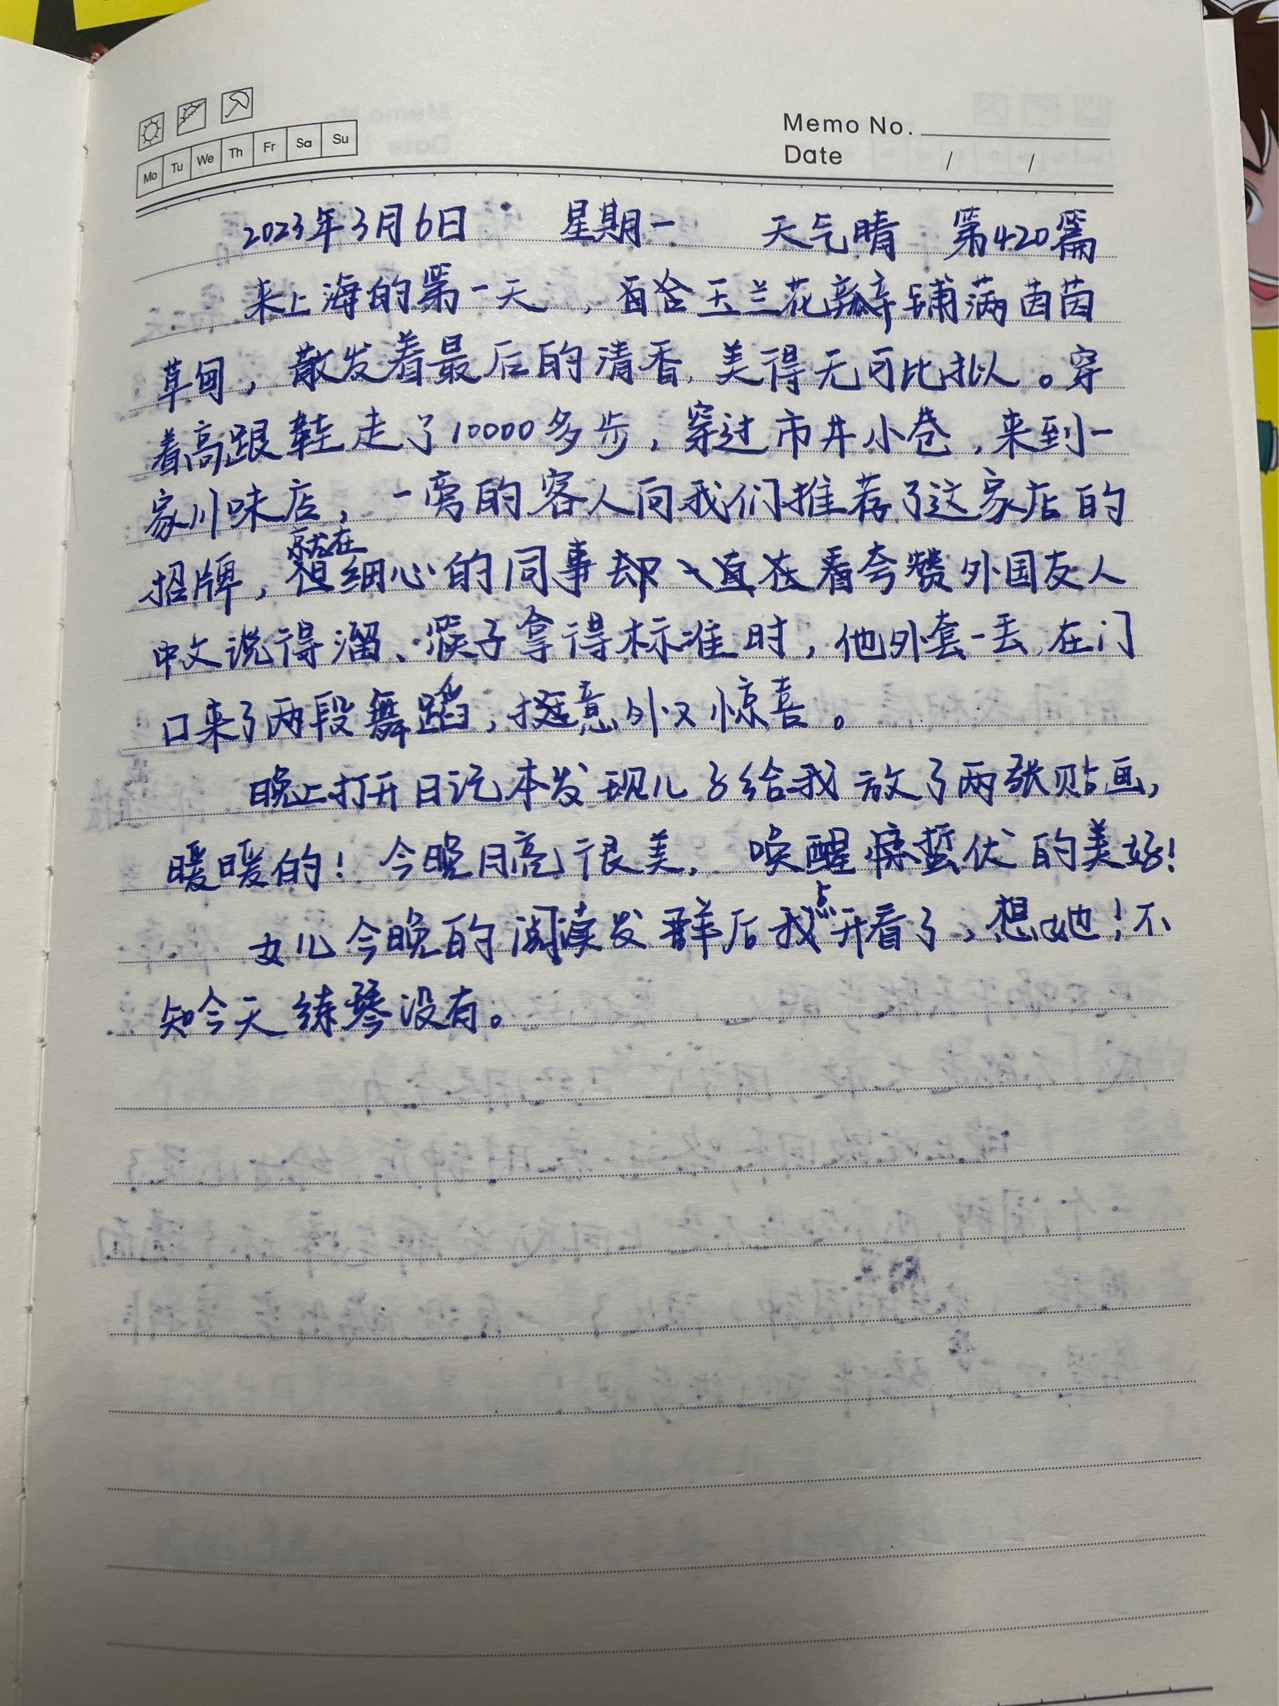 Memo No.
Date / /
Mo Tu We Th Fr Sa Su
2023年3月6日 星期一 天气晴 第420篇
来上海的第一天，百合玉兰花瓣铺满茵茵
草甸，散发着最后的清香，美得无可比拟。穿
着高跟鞋走了10000多步，穿过市井小巷，来到一
家川味店，一旁的客人向我们推荐了这家店的
就在
招牌，但细心的同事却一直在看夸赞外国友人
中文说得溜、筷子拿得标准时，他外套一丢，在门
口来了两段舞蹈，挺意外又惊喜。
晚上打开日记本发现儿子给我放了两张贴画，
暖暖的！今晚月亮很美，唤醒蛰伏的美好！
点
女儿今晚的阅读发群后我开看了，想她！不
知今天练琴没有。